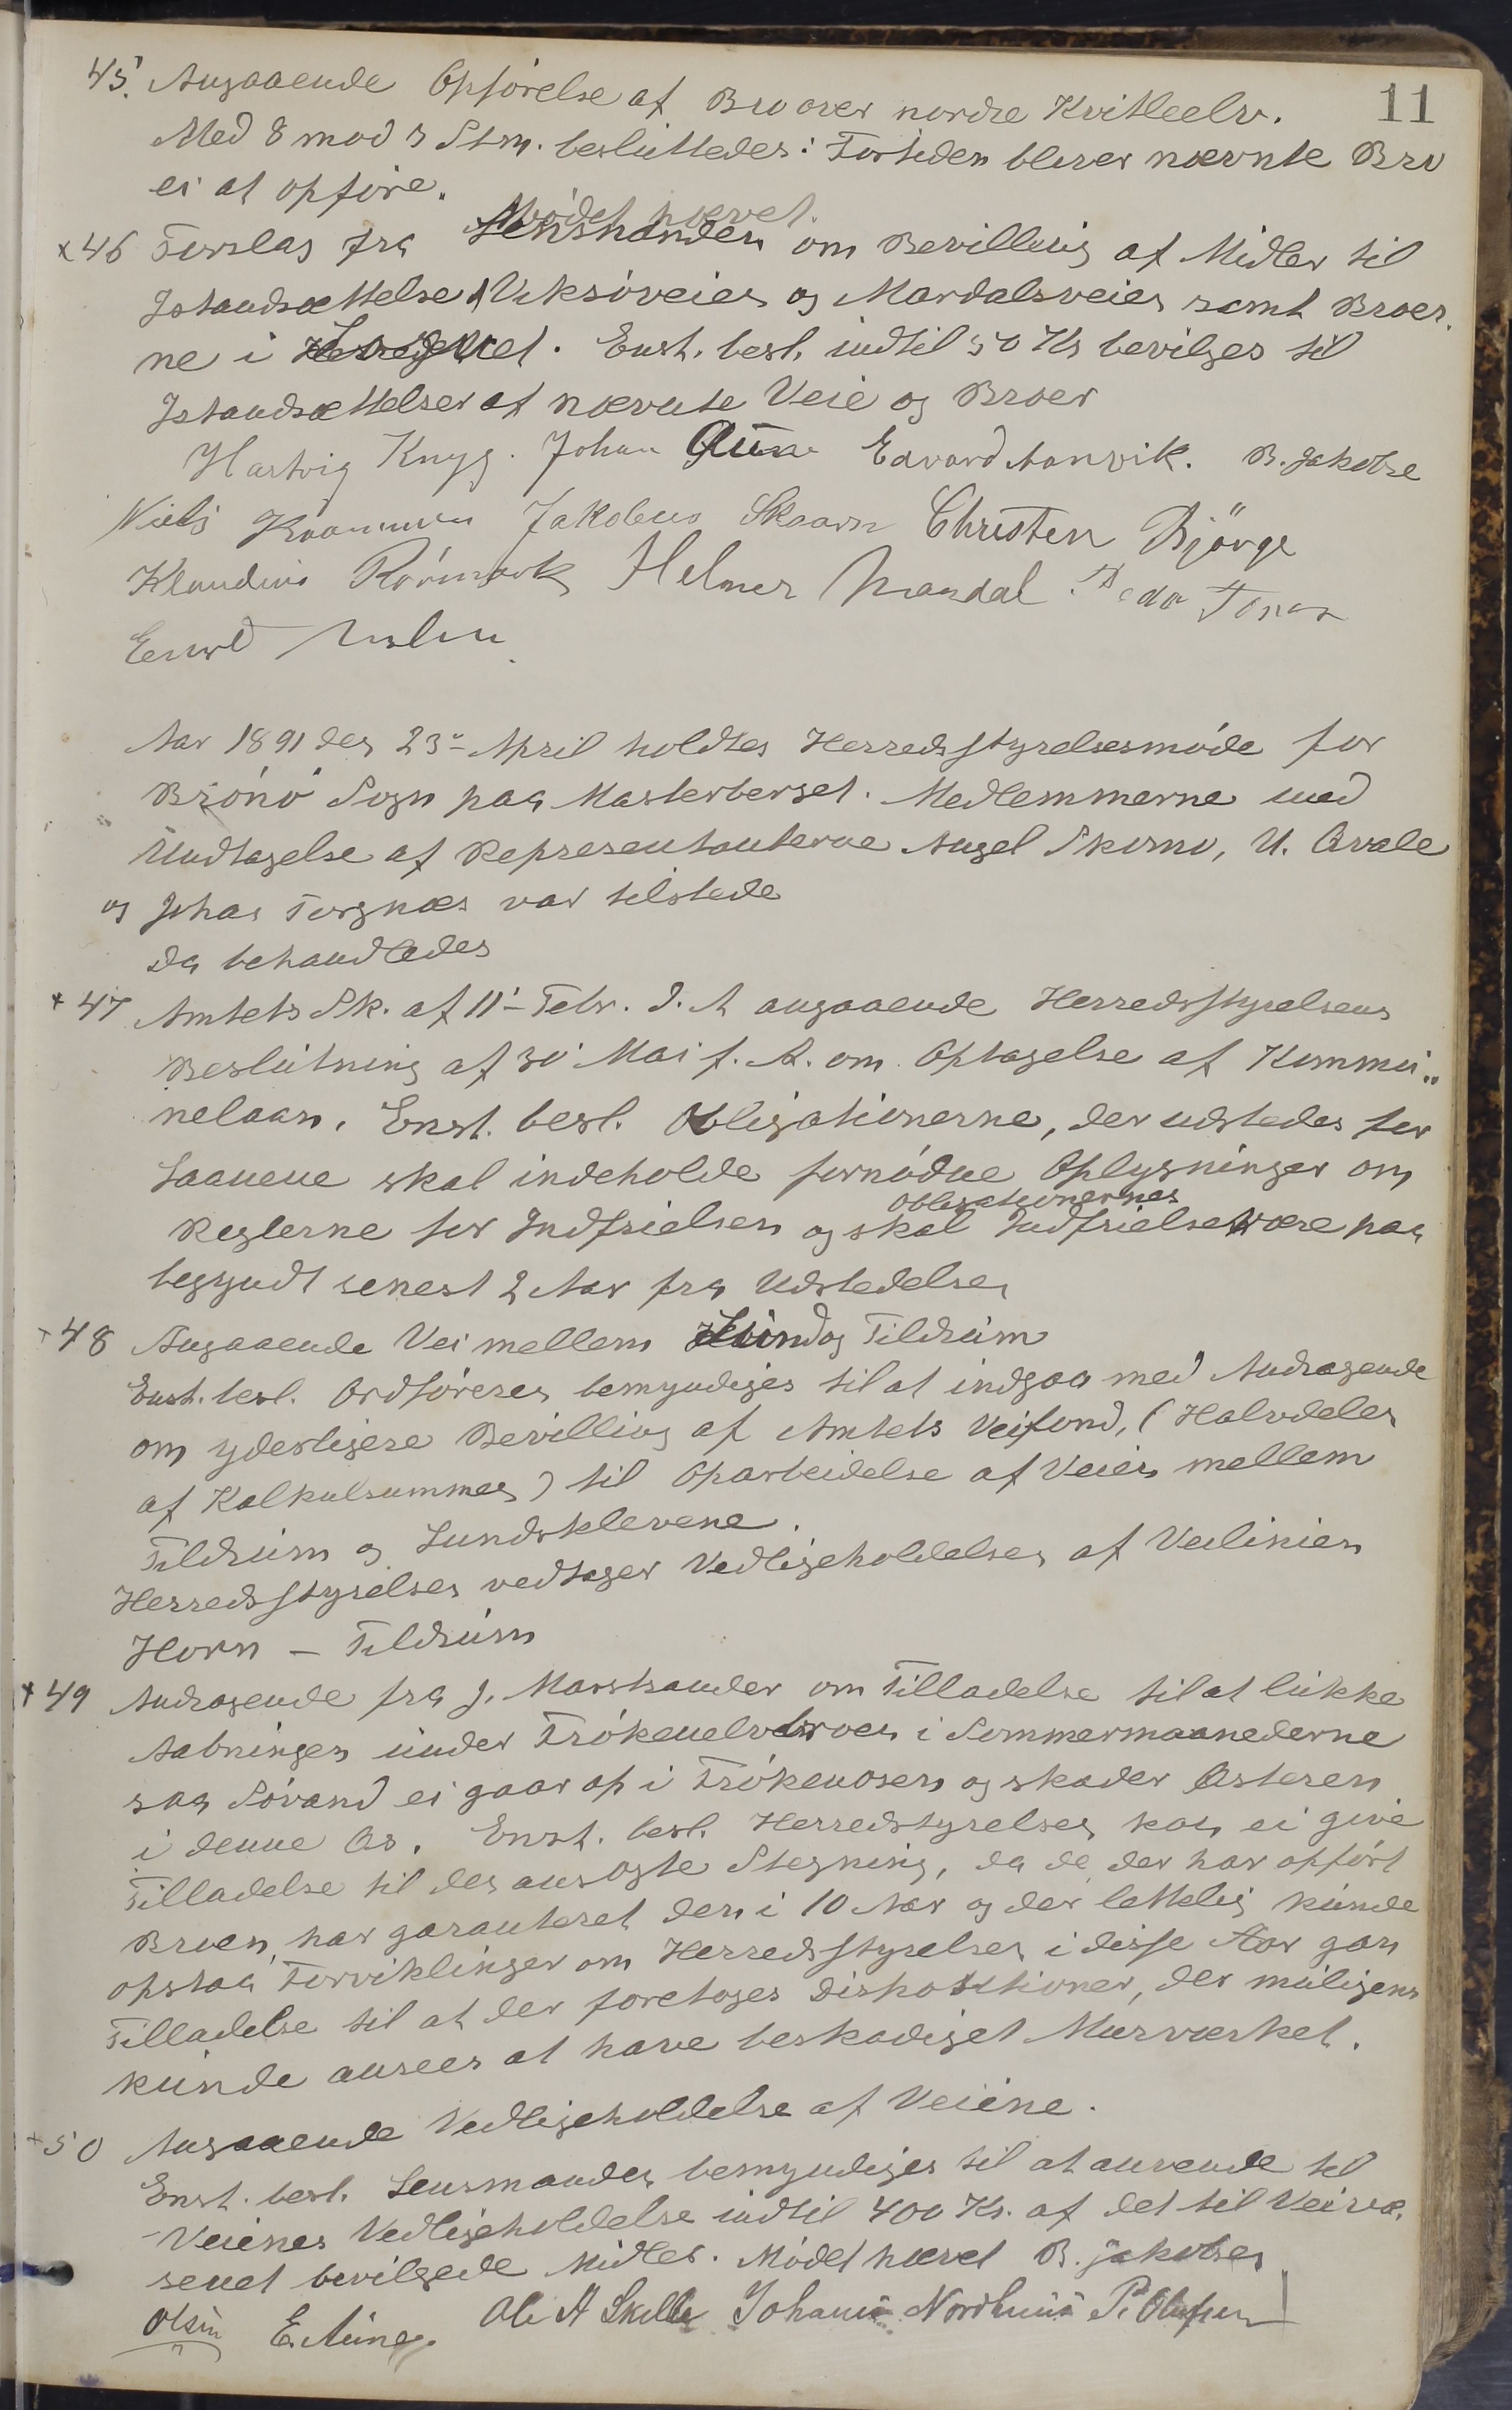 11
45. Angaaende Opførelse af Bro over nordre Kvitleelv.
Med 8 mod 3 Stm. besluttedes: Fortiden bliver nævnte Bro
ei at opføre.
Mødet hævet.
x 46 Forslag fra Lensmanden om Bevilling af Midler til
Istandsættelse af Veksøveien og Mardalsveien samt Broer-
ne i . Enst. besl. indtil 50 Kr bevilges til
Istandsættelser af nævnte Veie og Broer
Hartvig Knyg. Johan Edvard Aanvik. B. Jakobse
Niels Jakobus Skaarn Christen Bjørge
Klaudius Rørmark Helmer Mardal Peder
Aar 1891 den 23de April holdtes Herredsstyrelsesmøde for
Brønø Sogn paa Mosterberget. Medlemmerne med
Undtagelse af Repræsentanterne Angel Skomo, U.
og Johan Torgnæs var tilstede
Da behandledes
x 47 Amtets Sk. af 11'- Febr. d. A angaaende Herredsstyrelsens
Beslutning af 30' Mai f. A. om Optagelse af Kommu"
nelaan. Enst. besl. Obligationerne, der udstedes for
Laanene skal indeholde fornødne Oplysninger om
Obligationernes
Reglerne for Indfrielsen og skal Indfrielse være paa
begyndt senest 2 Aar fra Udstedelsen
+ 48 Angaaende Vei mellem og Tildrum
Enst. besl. Ordføreren bemyndiges til at indgaa med Andragende
om yderligere Bevilling af Amtets Veifond, (Halvdelen
af Kalkulsummen) til Oparbeidelse af Veien mellem
Tildrum og Lundsklevene.
Herredsstyrelsen vedtager Vedligeholdelsen af Veilinien
Horn – Tildrum
+ 49 Andragende fra J. Marstrander om Tilladelse til at lukke
Aabningen under Frøkenelvbroen i Sommermaanederne
saa Søvand ei gaar op i Frøkenosen og skader Østeren
i denne Os. Enst. besl. Herredstyrelsen kan ei give
Tilladelse til den ansøgte Stegning, da de, der har opført
Broen, har garanteret den i 10 Aar og der lettelig kunde
opstaa Forviklinger om Herredsstyrelsen i disse Aar gav
Tilladelse til at der foretoges Dispositioner, der muligens
kunde ansees at have beskadiget Murværket.
+ 50 Angaaende Vedligeholdelse af Veiene.
Enst. besl. Lensmanden bemyndiges til at anvende til
Veienes Vedligeholdelse indtil 400 Kr. af det til Veivæ-
senet bevilgede Midler. Mødet hævet B. Jakobsen
Olsen E. Aune Ole A Skille Johannes Nordhuus P. Olufsen